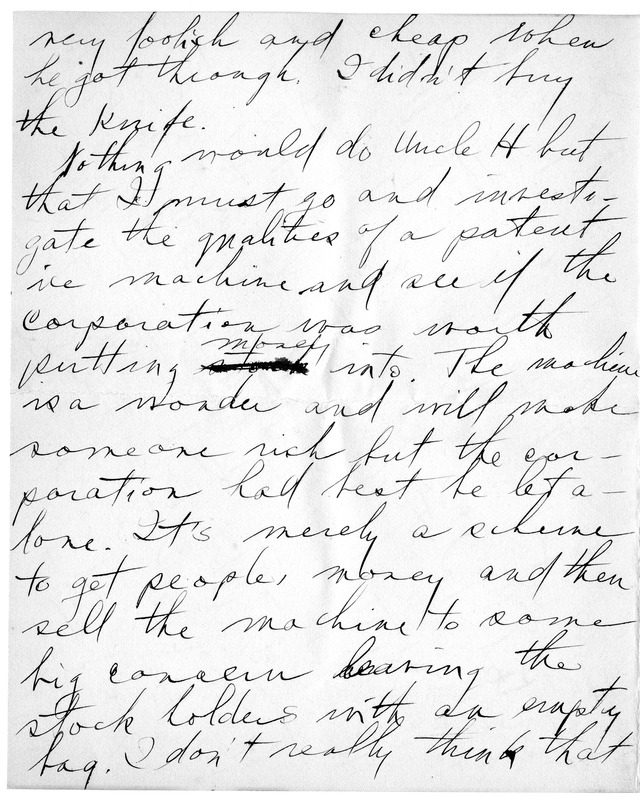 very foolish and cheap when
he got through. I didn't buy
the knife.
Nothing would do Uncle H but
that I must go and investi-
gate the qualities of a patent
ice machine and see if the
corporation was worth
money
putting stock into. The machine
is a wonder and will make
someone rich but the cor-
poration had best be let a-
lone. It's merely a scheme
to get people, money and then
sell the machine to some
big concern leaving the
stock holders with an empty
bag. I don't really think that